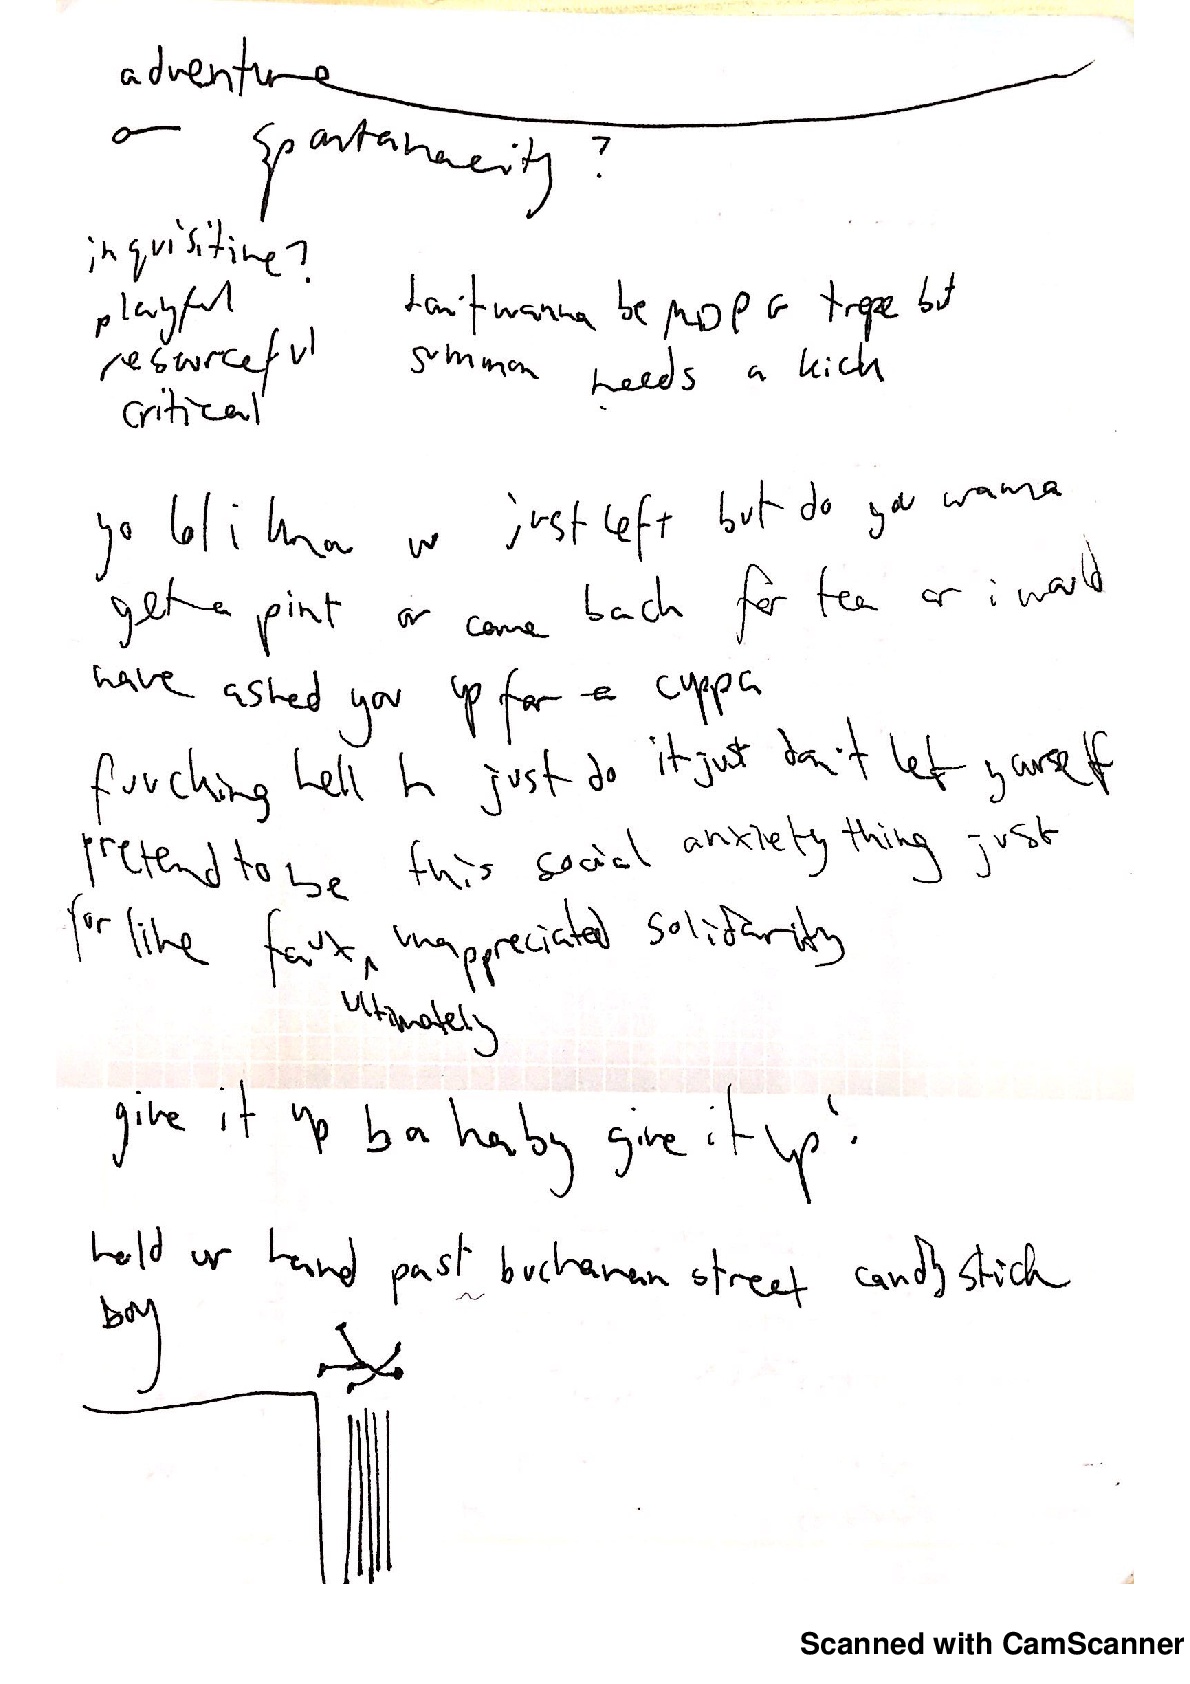 adventure
or spontanaeity?
inquisitive?
playful
resourceful
critical
don't wanna be MDPG trope but
summon needs a kick
yo lol i kna w just left but do you wanna
get a pint or come back for tea or i would
have asked you up for a cuppa
fuucking hell h just do it just don't let yourself
pretend to be this social anxiety thing just
for like faux ^ unappreciated solidarity
ultimately
give it up ba haby give it up'.
hold ur hand past buchanan street candystick
boy
Scanned with CamScanner